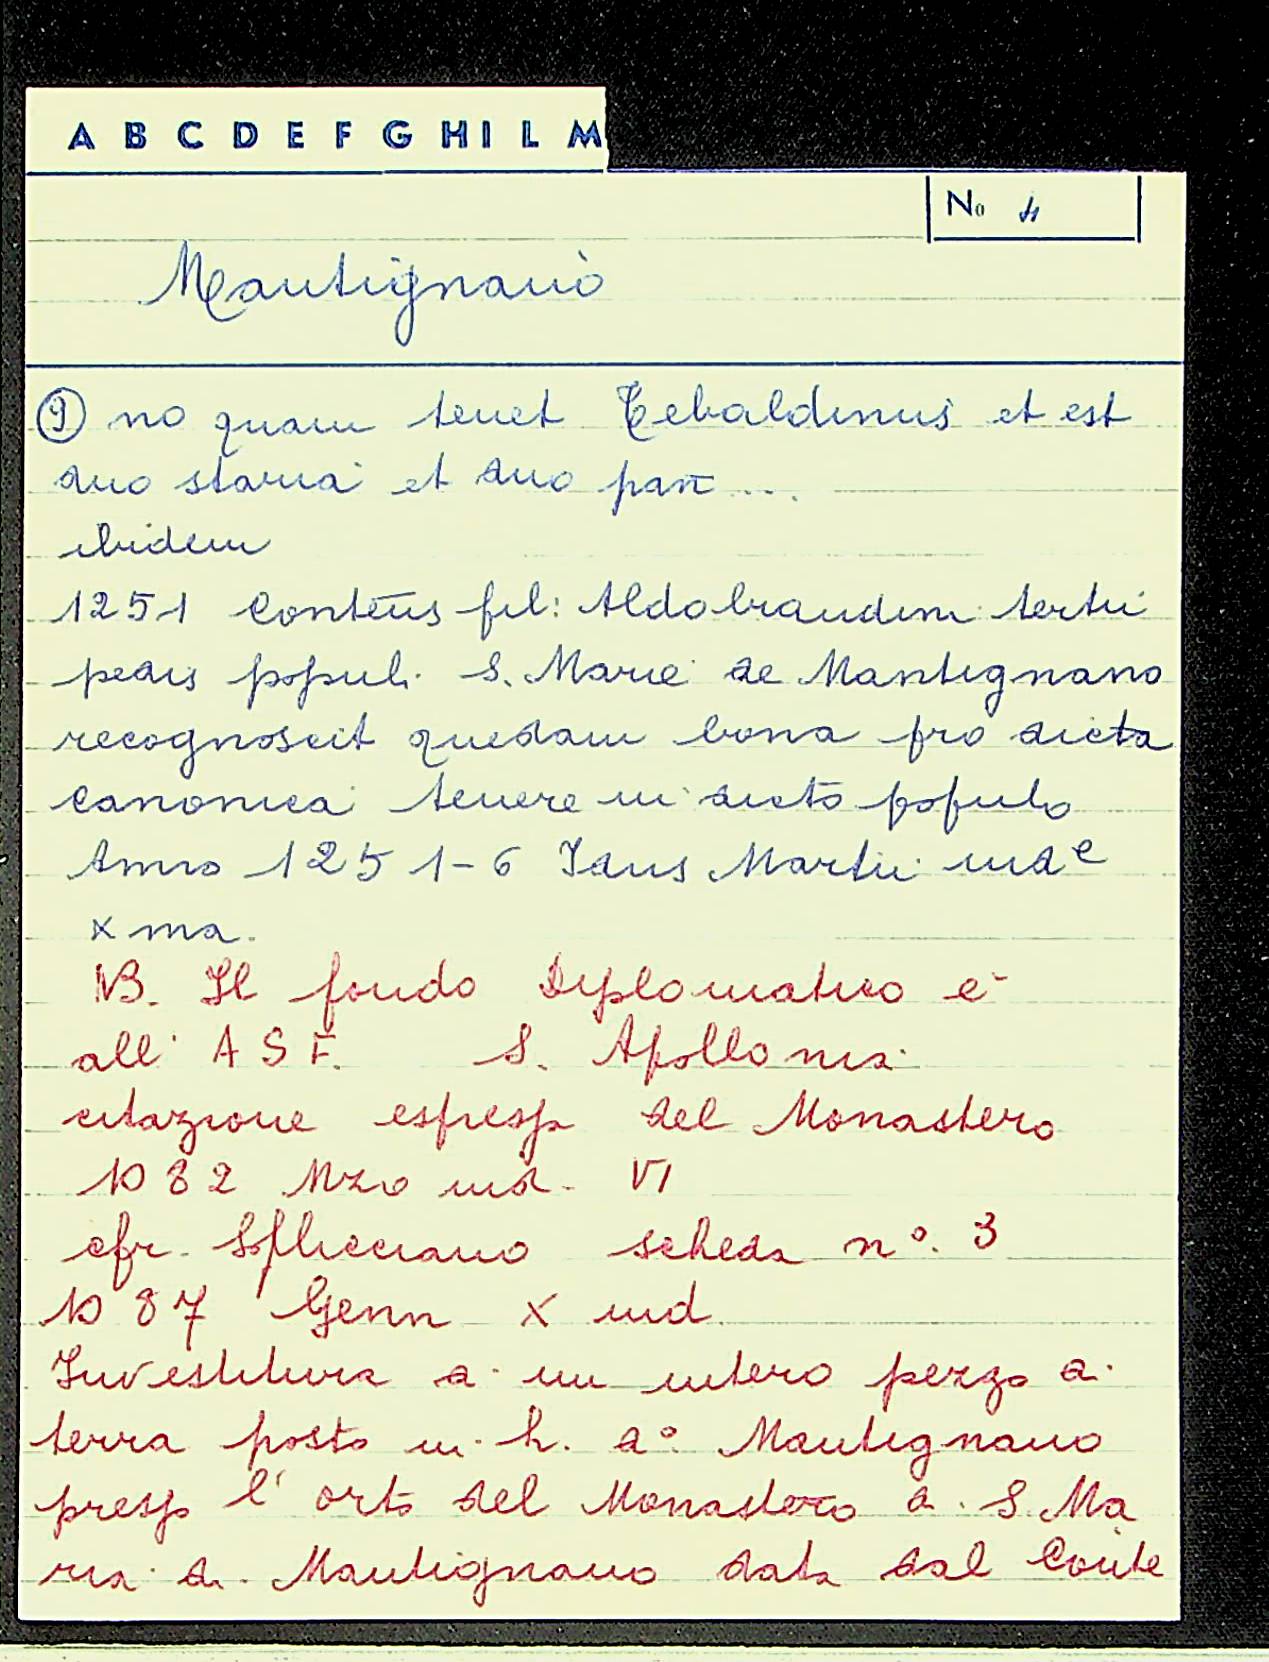 A B C D E F G H I L M
No 4
Mantignano
9 no quam tenet Tebaldinus et est
duo staria et duo pan ....
ibidem
1251 Contēus fil: Aldobrandini tertii
pedis populi S. Marie de Mantignano
recognoscit quedam bona pro dicta
canonica tenere in dicto populo
Anno 1251-6 Idus Martii ind e
x ma.
NB. Il fondo Diplomatico è
all' A S F. S. Apollonia
citazione espressa del Monastero
1082 Mzo ind. VI
cfr. Sollicciano scheda n°. 3
1087 Genn X ind.
Investitura di un intero pezzo di
terra posto in l. d° Mantignano
presso l'orto del Monastero di S. Ma
ria di Mantignano data dal Conte